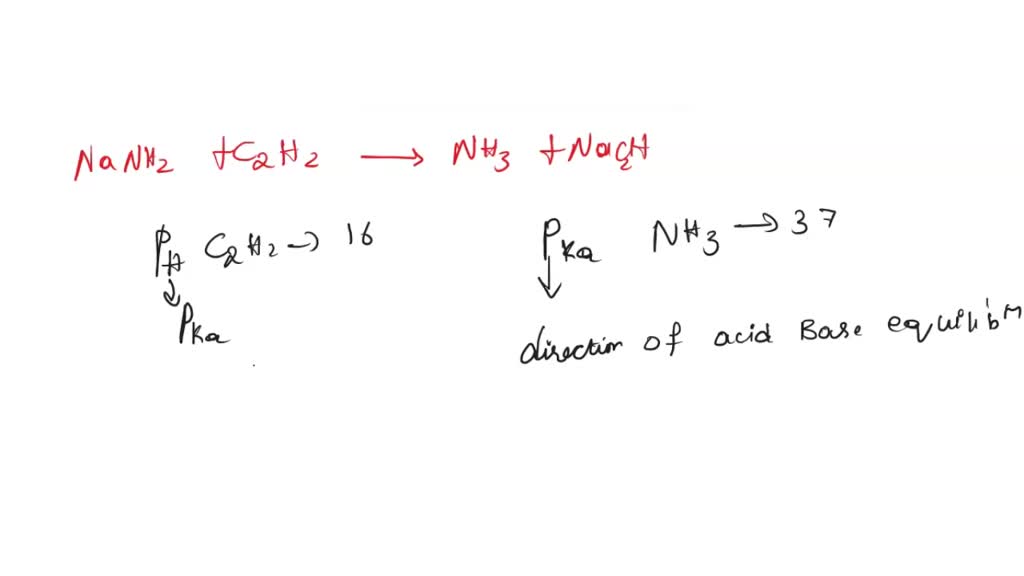 NaNH2 + C2H2 → NH3 + NaC2H
PH C2H2 → 16
Pka
Pka NH3 → 37
direction of acid Base equilibm